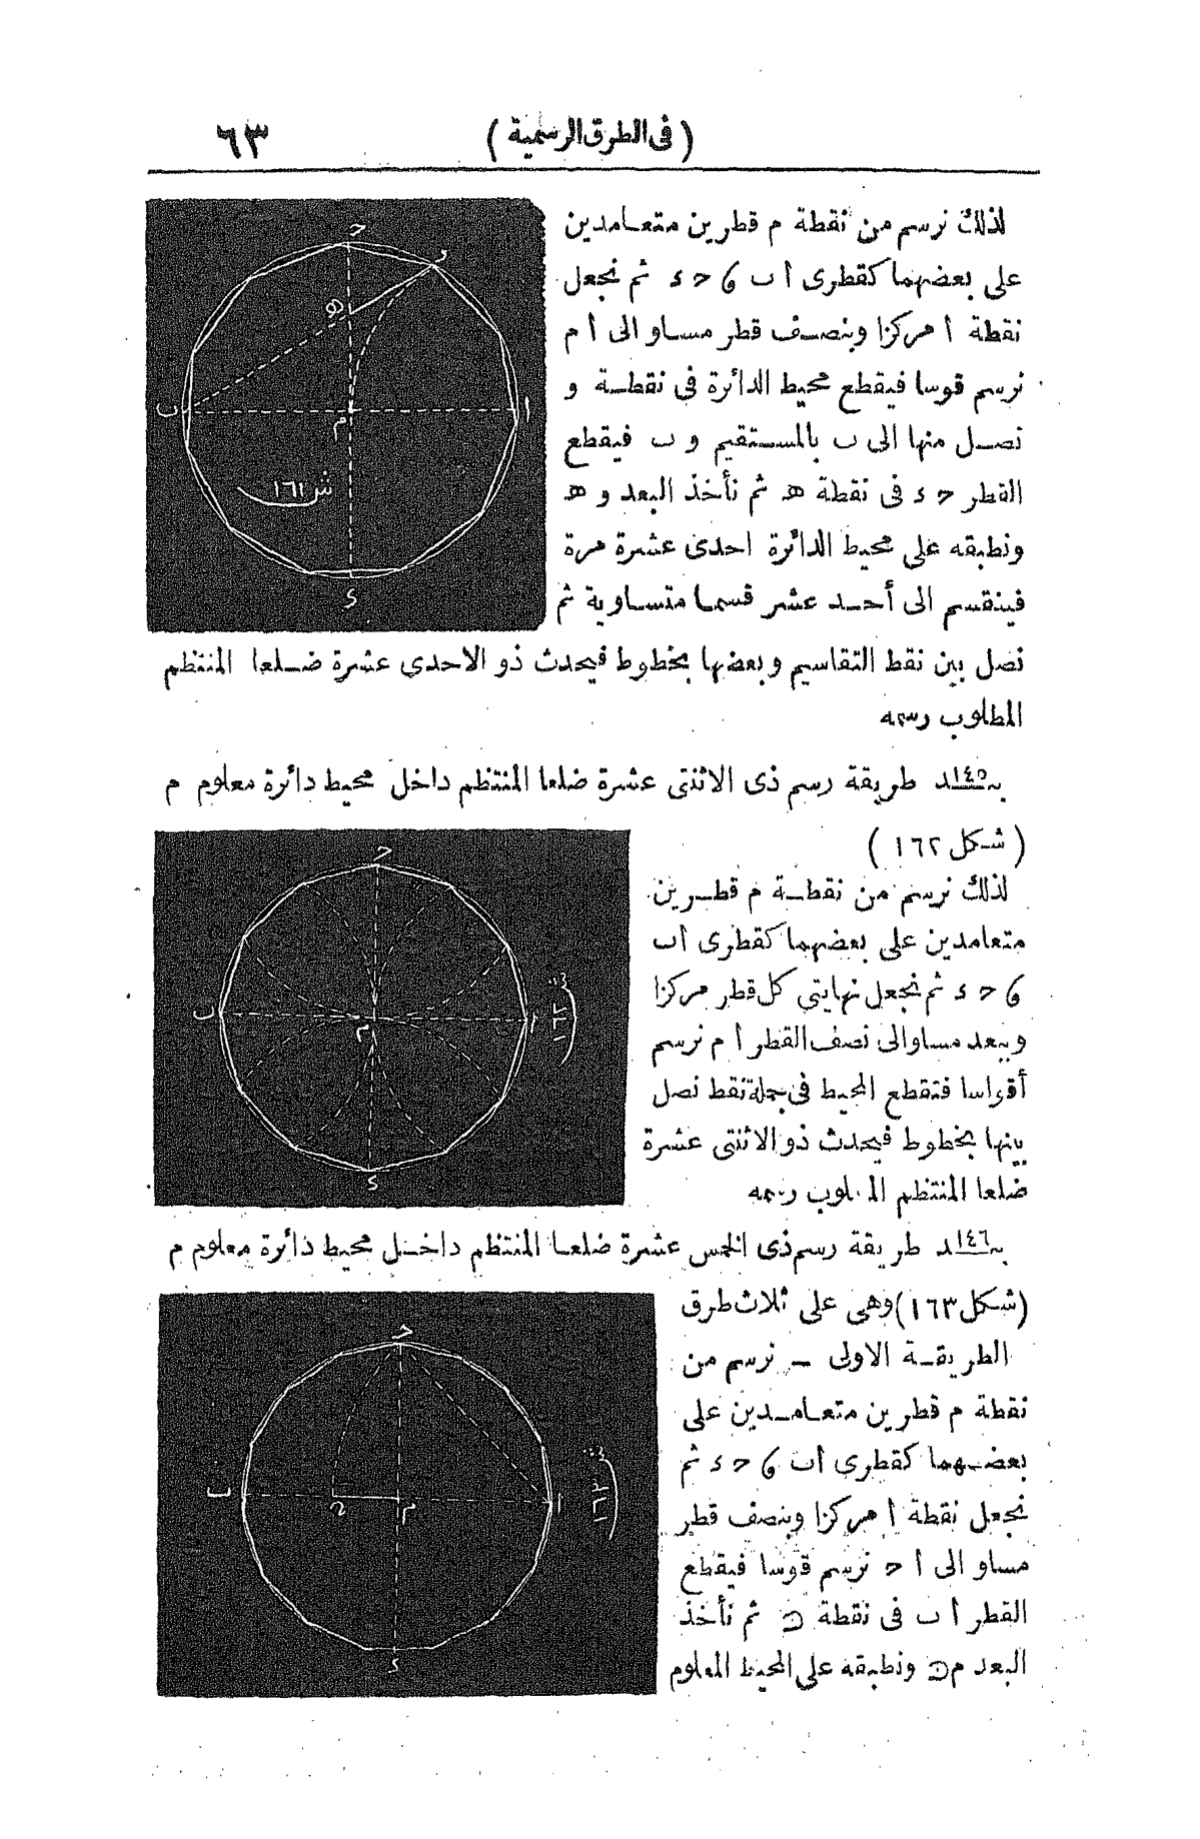 (فى الطرق الرسمية) ٦٣
لذلك نرسم من نقطة م قطرين متعـامدين
على بعضهما كقطرى ا ب و ح د ثم نجعل
نقطة ا مركزا وبنصـف قطر مسـاو الى ا م
نرسم قوسا فيقطع محيط الدائرة فى نقطـة و
نصـل منها الى ب بالمسـتقيم و ب فيقطع
القطر ح د فى نقطة ه ثم نأخذ البعد و ه
ونطبقه على محيط الدائرة احدى عشرة مرة
فينقسم الى أحـد عشر قسما متسـاوية ثم
نصل بين نقط التقاسيم وبعضها بخطوط فيحدث ذو الاحدى عشرة ضـلعا المنتظم
المطلوب رسمه
ح
و
ه
ب
ا
م
ش ١٦١
د
بـ١٤٥ـد طريقة رسم ذى الاثنتى عشرة ضلعا المنتظم داخل محيط دائرة معلوم م
(شـكل ١٦٢)
لذلك نرسم من نقطـة م قطـرين
متعامدين على بعضهما كقطرى ا ب
و ح د ثم نجعل نهايتى كل قطر مركزا
وببعد مساو الى نصف القطر ا م نرسم
أقواسا فتقطع المحيط فى جملة نقط نصل
بينها بخطوط فيحدث ذو الاثنتى عشرة
ضلعا المنتظم المطلوب رسمه
ح
ب
ا
م
ش ١٦٢
د
بـ١٤٦ـد طريقة رسم ذى الخمس عشرة ضلعـا المنتظم داخـل محيط دائرة معلوم م
(شـكل ١٦٣) وهى على ثلاث طرق
الطريقـة الاولى ـ نرسم من
نقطة م قطرين متعـامـدين على
بعضـهما كقطرى ا ب و ح د ثم
نجعل نقطة ا مركزا وبنصف قطر
مساو الى ا ح نرسم قوسا فيقطع
القطر ا ب فى نقطة ن ثم نأخذ
البعد م ن ونطبقه على المحيط المعلوم
ح
ب
ن
م
ا
ش ١٦٣
د